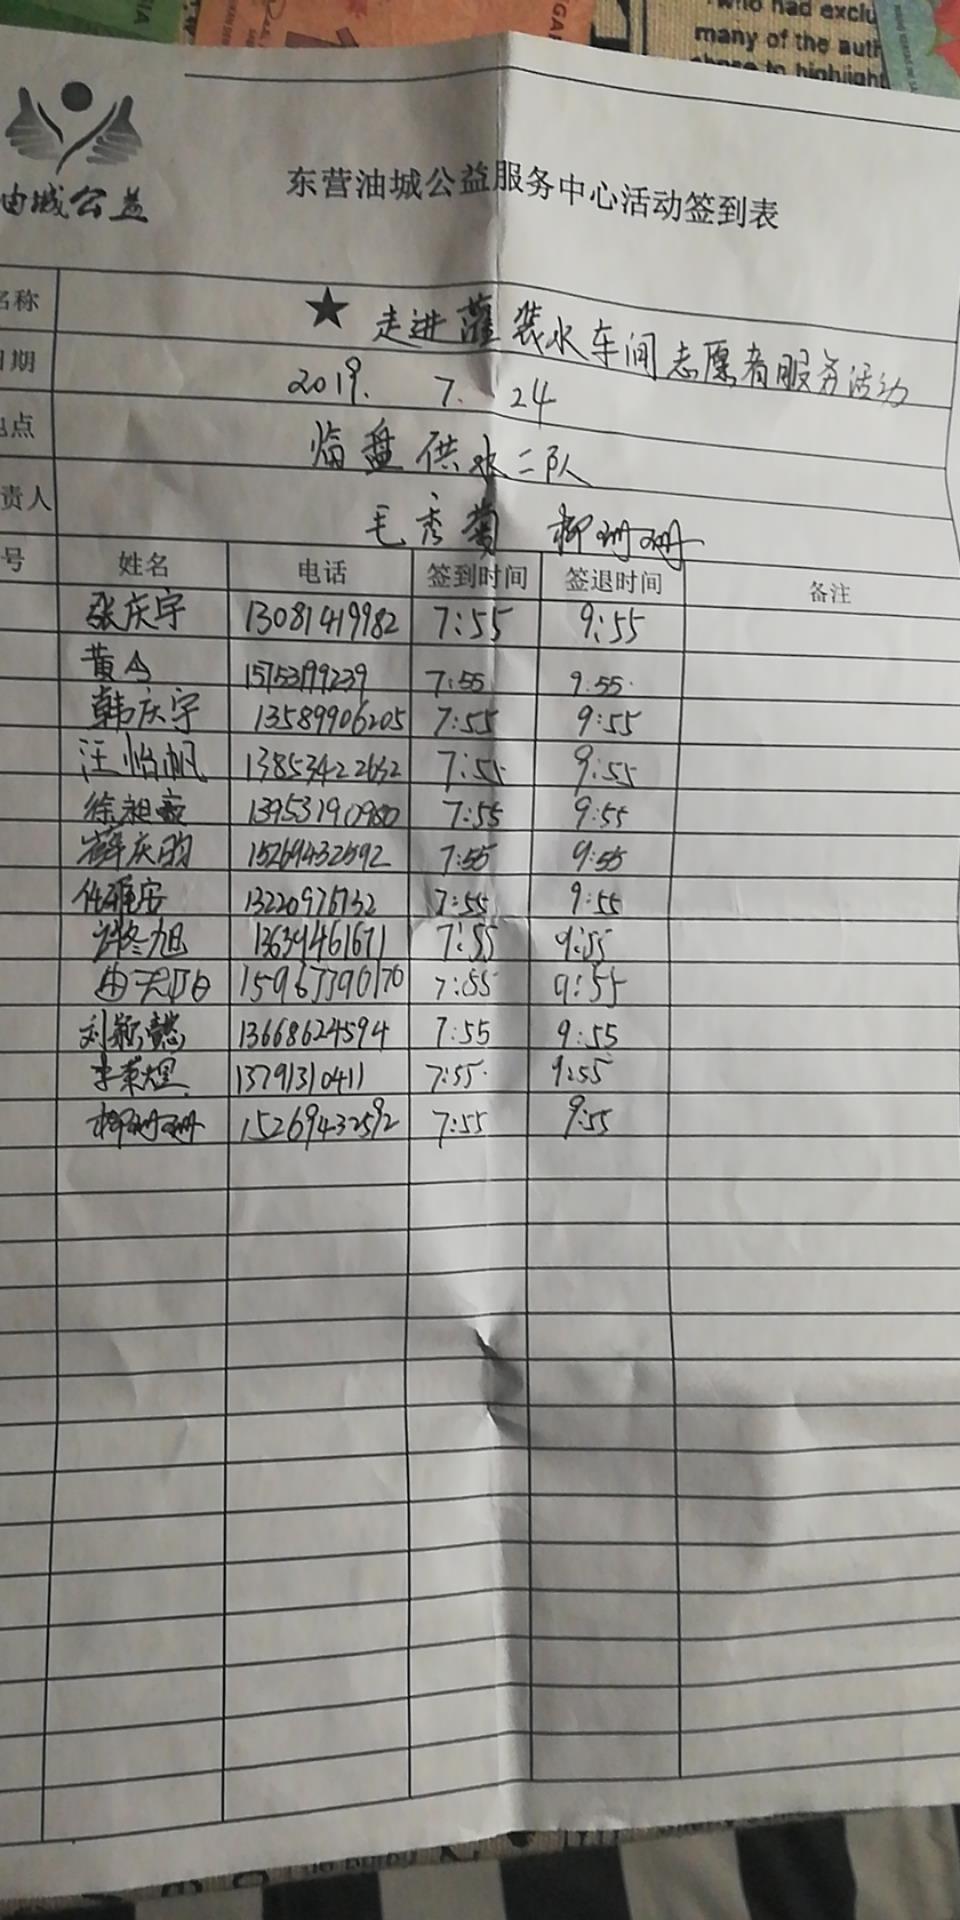 who had exclu
many of the auth
chose to highlight
油城公益
东营油城公益服务中心活动签到表
名称 ★ 走进灌装水车间志愿者服务活动
日期 2019. 7. 24
地点 临盘供水二队
责人 毛秀菊 柳珊珊
号 姓名 电话 签到时间 签退时间 备注
张庆宇 13081419982 7:55 9:55
黄今 15753199239 7:55 9:55
韩庆宇 13589906205 7:55 9:55
汪怡帆 13853422632 7:55 9:55
徐昶 13953190980 7:55 9:55
薛庆昀 15269432592 7:55 9:55
任雅安 13220976732 7:55 9:55
许冬旭 13639461671 7:55 9:55
由 15967390170 7:55 9:55
刘颖懿 13668624594 7:55 9:55
李荣煜 13791310411 7:55 9:55
柳珊珊 15269432592 7:55 9:55